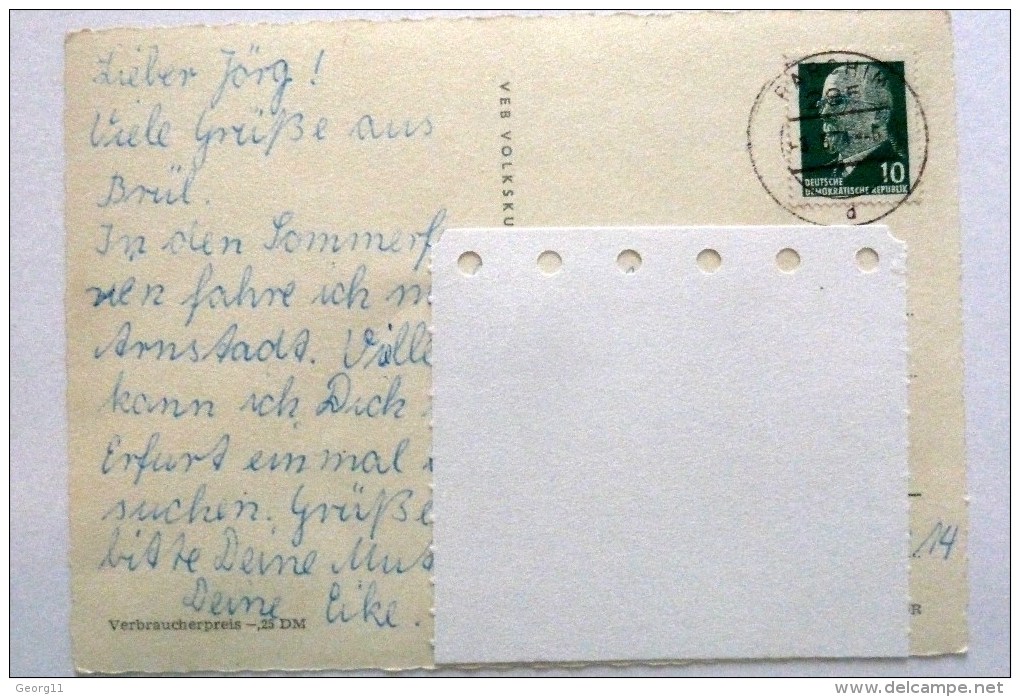 Lieber Jörg!
Viele Grüße aus
Brül.
In den Sommerf
rien fahre ich n
Arnstadt. Viille
kann ich Dich
Erfurt einmal
suchen. Grüße
bitte Deine Mut
Deine Eike.
Verbraucherpreis -,25 DM
VEB VOLKSKU
PARCHIM
10
DEUTSCHE
DEMOKRATISCHE REPUBLIK
d
14
R
Georg11
www.delcampe.net